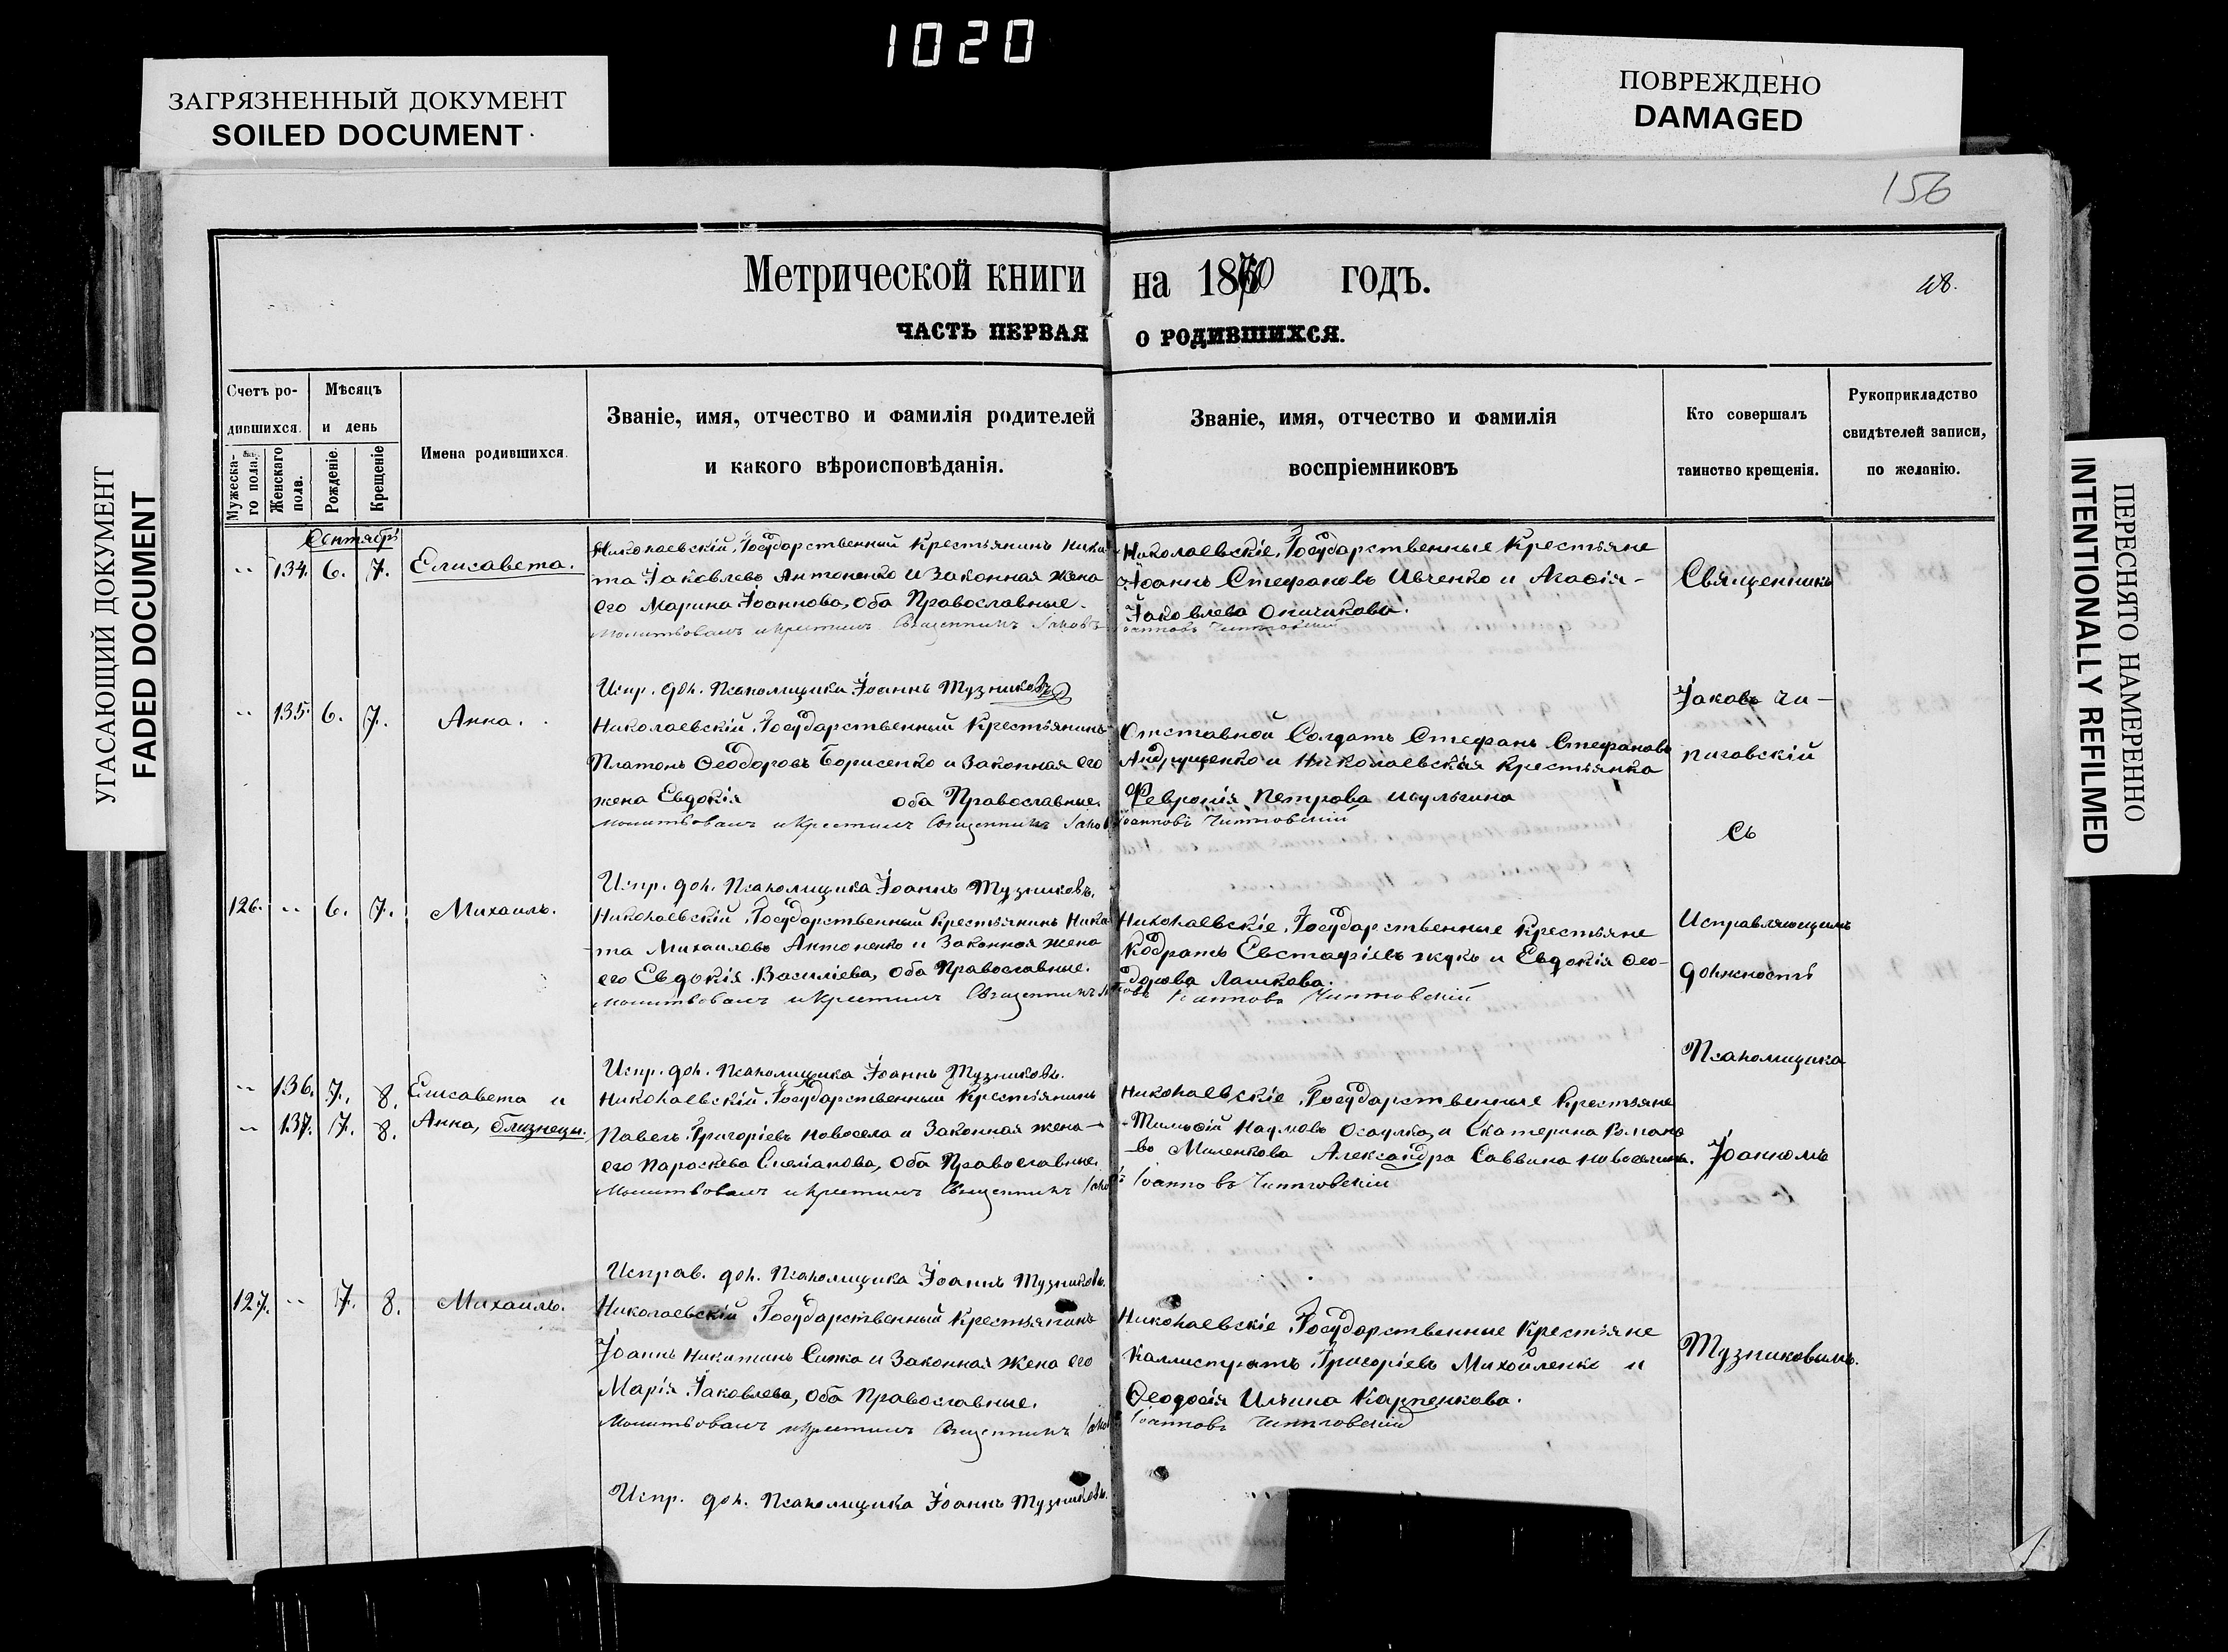 1020
ЗАГРЯЗНЕННЫЙ ДОКУМЕНТ
SOILED DOCUMENT
ПОВРЕЖДЕНО
DAMAGED
УГАСАЮЩИЙ ДОКУМЕНТ
FADED DOCUMENT
ПЕРЕСНЯТО НАМЕРЕННО
INTENTIONALLY REFILMED
156
Метрической книги на 1870 годъ.
ЧАСТЬ ПЕРВАЯ О РОДИВШИХСЯ.
Счетъ родившихся.
Мужескаго пола.
Женскаго пола.
Мѣсяцъ и день
Рожденіе.
Крещеніе
Имена родившихся.
Званіе, имя, отчество и фамилія родителей
и какого вѣроисповѣданія.
Званіе, имя, отчество и фамилія
воспріемниковъ
Кто совершалъ
таинство крещенія.
Рукоприкладство
свидѣтелей записи,
по желанію.
Сентябрь
134. 6. 7. Елисавета.
Николаевскій Государственный Крестьянинъ Ники-
та Іаковлевъ Антоненко и Законная жена
его Марина Іоаннова, оба Православные.
Молитвовалъ и крестилъ Священникъ Іаковъ Іоанновъ
Испр. дол. Псаломщика Іоаннъ Тузниковъ
Николаевскіе Государственные Крестьяне
Іоаннъ Стефановъ Ивченко и Агафія
Іаковлева
135. 6. 7. Анна.
Николаевскій Государственный Крестьянинъ
Платонъ Феодоровъ Борисенко и Законная его
жена Евдокія оба Православные.
Молитвовалъ и крестилъ Священникъ Іаковъ Іоанновъ
Испр. дол. Псаломщика Іоаннъ Тузниковъ.
Отставной Солдатъ Стефанъ Стефановъ
Андрущенко и Николаевская Крестьянка
Февронія Петрова
126. 6. 7. Михаилъ.
Николаевскій Государственный Крестьянинъ Ники-
та Михаиловъ Антоненко и Законная жена
его Евдокія Василіева, оба Православные.
Молитвовалъ и крестилъ Священникъ Іаковъ Іоанновъ
Испр. дол. Псаломщика Іоаннъ Тузниковъ.
Николаевскіе Государственные Крестьяне
Кодратъ Евстафіевъ Жукъ и Евдокія Фео-
дорова Лашкова.
136. 7. 8. Елисавета и
137. 7. 8. Анна, близнецы.
Николаевскій Государственный Крестьянинъ
Павелъ Григоріевъ Новосела и Законная жена
его Параскева оба Православные.
Молитвовалъ и крестилъ Священникъ Іаковъ Іоанновъ
Исправ. дол. Псаломщика Іоаннъ Тузниковъ.
Николаевскіе Государственные Крестьяне
Наумовъ и Екатерина Романо-
ва Миленкова Александра Саввина
127. 7. 8. Михаилъ.
Николаевскій Государственный Крестьянинъ
Іоаннъ Никитинъ и Законная Жена его
Марія Іаковлева, оба Православные.
Молитвовалъ и крестилъ Священникъ Іаковъ Іоанновъ
Испр. дол. Псаломщика Іоаннъ Тузниковъ.
Николаевскіе Государственные Крестьяне
Каллистратъ Григоріевъ Михайленко и
Феодосія Ильина Карпенкова.
Священникъ
Іаковъ Чи-
пиговскій
Съ
Исправляющимъ
должность
Псаломщика
Іоанномъ
Тузниковымъ.